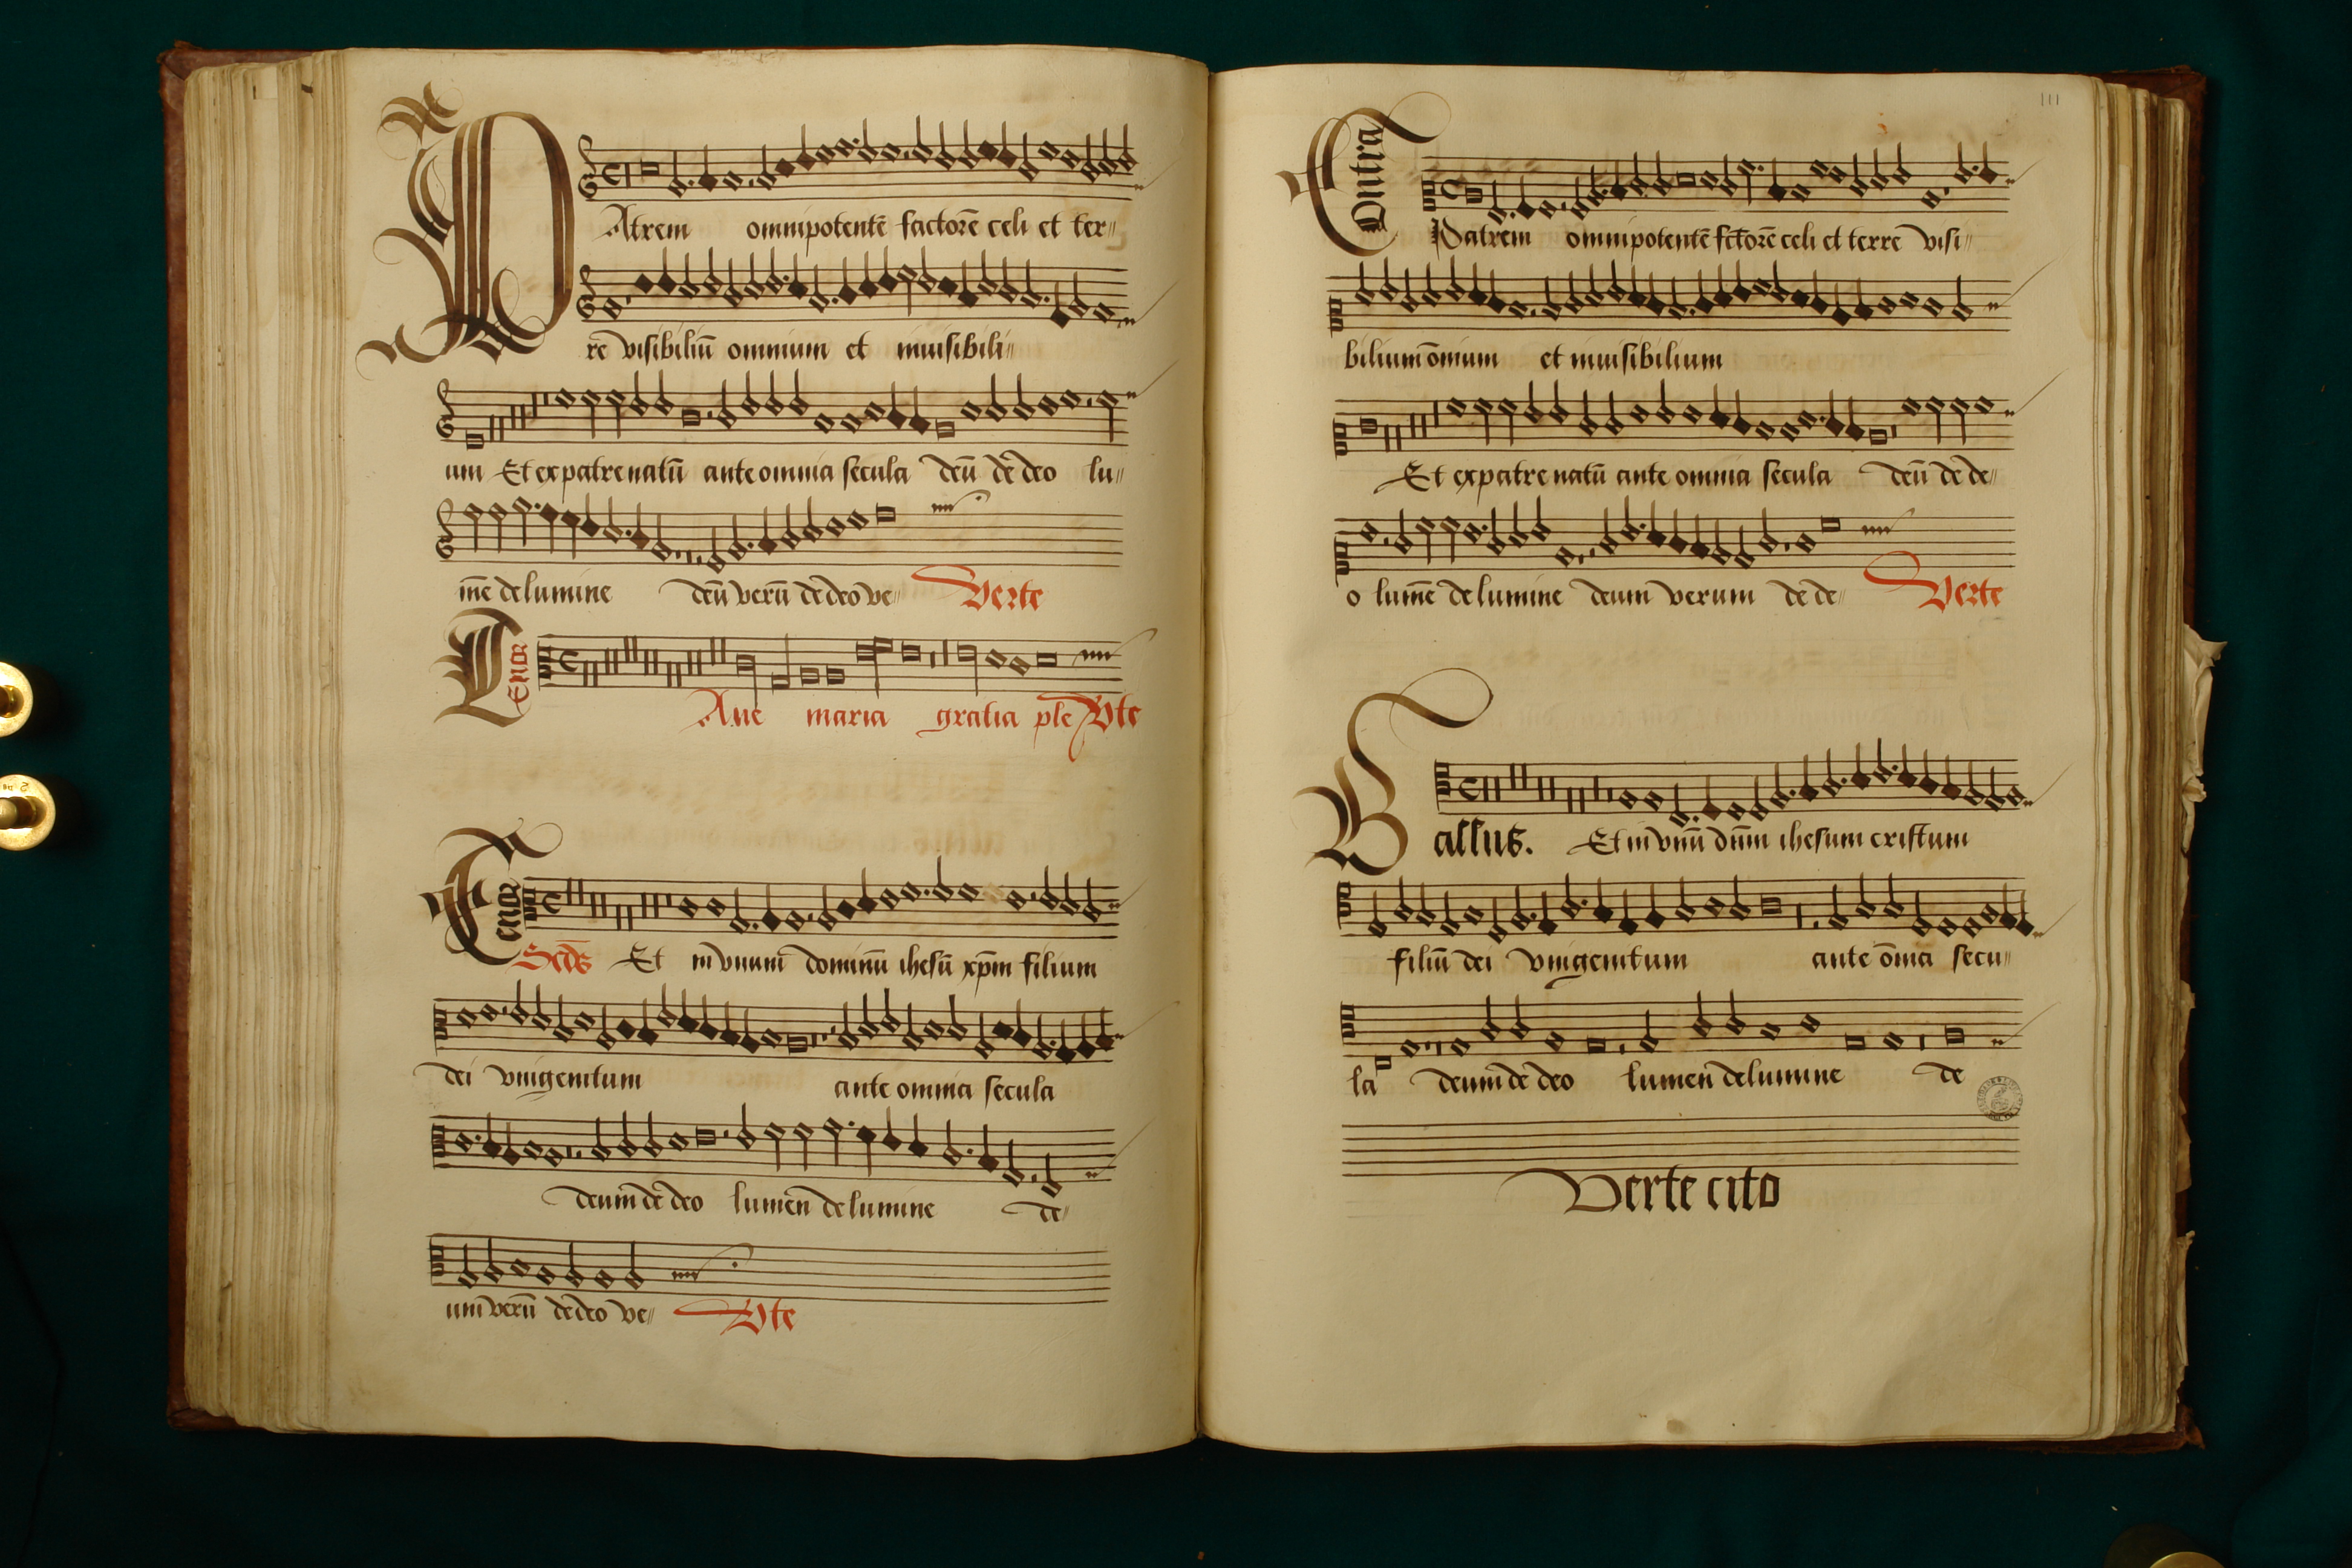 PAtrem omnipotentē factorē celi et ter〃
rē visibiliū omnium et inuisibili〃
um Et ex patre natū ante omnia secula deū de deo lu〃
mē de lumine deū verū de deo ve〃 Verte
Tenor
Aue maria gratia ple Vte
Tenor
Scds Et in vnum dominū ihesū xp̄m filium
dei vnigenitum ante omnia secula
deum de deo lumen de lumine de〃
um verū de deo ve〃 Vte
111
Contra
Patrem omnipotentē fctorē celi et terre visi〃
bilium ōnium et inuisibilium
Et ex patre natū ante omnia secula deū de de〃
o lumē de lumine deum verum de de〃 Verte
Bassus. Et in vnū dn̄m ihesum cristum
filiū dei vnigenitum ante ōnia secu〃
la deum de deo lumen de lumine de
Verte cito